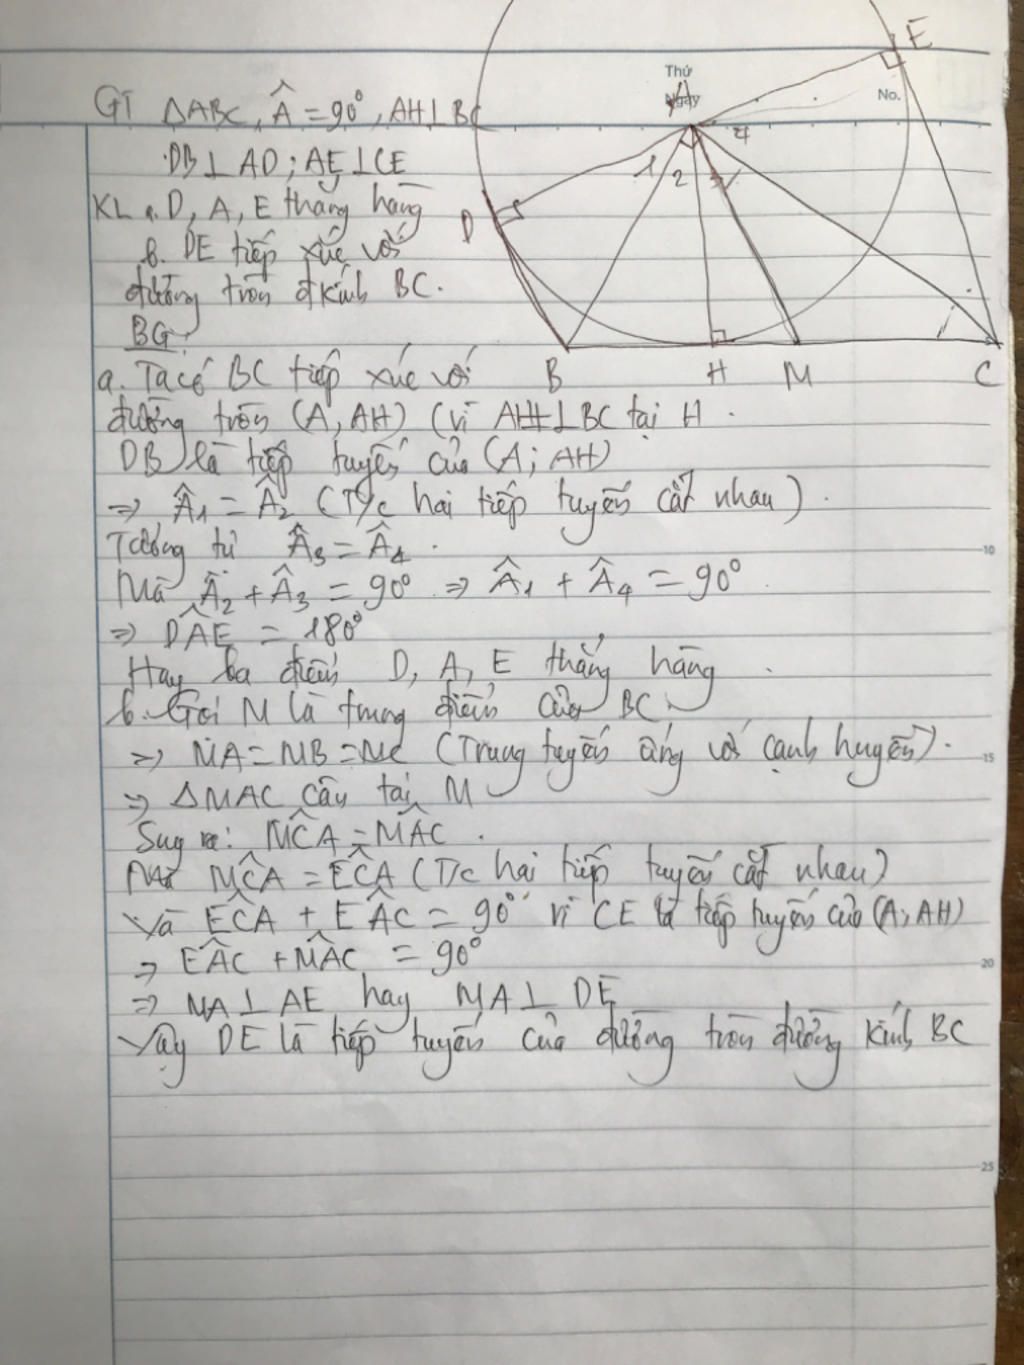 Thứ
Ngày
No.
E
A
1
2
4
D
B
H
M
C
1
GT ΔABC, Â = 90°, AH⊥BC
DB⊥AD; AE⊥CE
KL a. D, A, E thẳng hàng
b. DE tiếp xúc với
đường tròn đkính BC.
BG
a. Ta có BC tiếp xúc với
đường tròn (A, AH) (vì AH⊥BC tại H.
DB là tiếp tuyến của (A; AH)
=> Â1 = Â2 (T/c hai tiếp tuyến cắt nhau).
Tương tự Â3 = Â4.
Mà Â2 + Â3 = 90° => Â1 + Â4 = 90°
=> DÂE = 180°
Hay ba điểm D, A, E thẳng hàng.
b. Gọi M là trung điểm của BC
=> MA = MB = MC (Trung tuyến ứng với cạnh huyền).
=> ΔMAC cân tại M
Suy ra: MĈA = MÂC.
Mà MĈA = EĈA (T/c hai tiếp tuyến cắt nhau)
Và EĈA + EÂC = 90° vì CE là tiếp tuyến của (A, AH)
=> EÂC + MÂC = 90°
=> MA⊥AE hay MA⊥DE
Vậy DE là tiếp tuyến của đường tròn đường kính BC
10
15
20
25